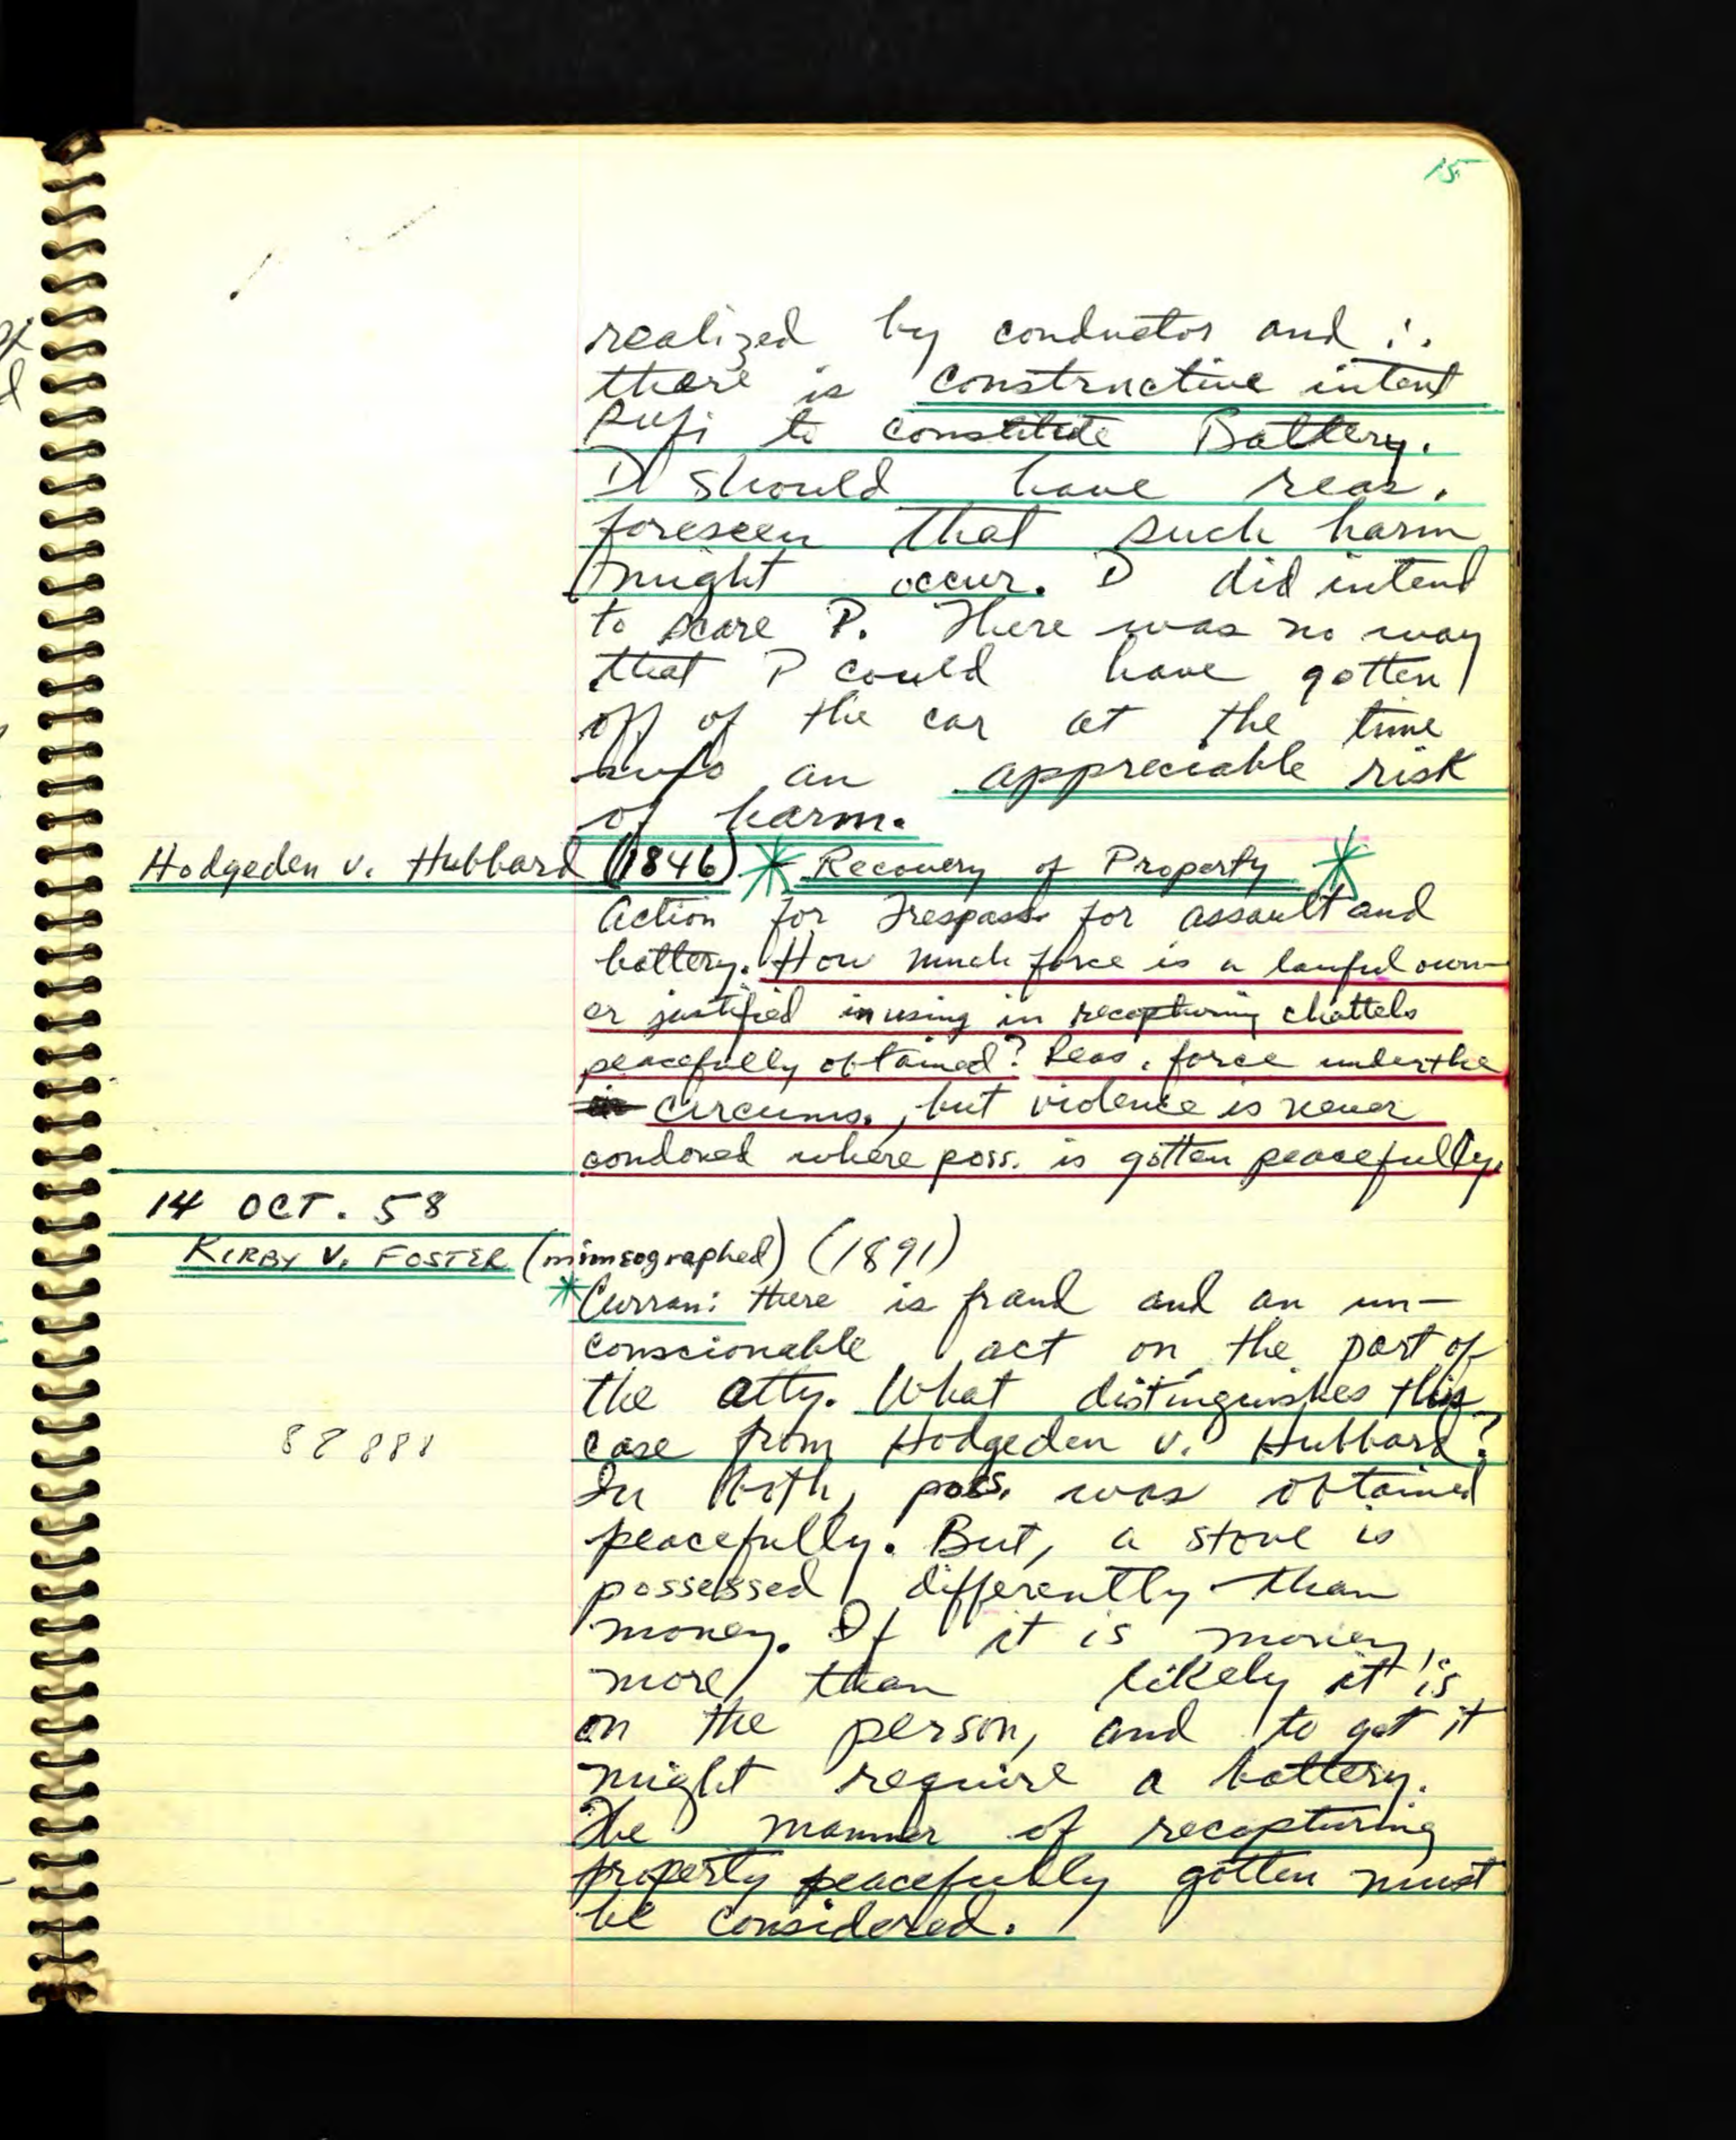 15
realized by conductor and ∴
there is constructive intent
sufi to constitute Battery.
D should have reas.
foreseen that such harm
might occur. D did intend
to scare P. There was no way
that P could have gotten
off of the car at the time
an appreciable risk
of harm.
Hodgeden v. Hubbard (1846) * Recovery of Property *
Action for Trespass for assault and
battery. How much force is a lawful own-
er justified in using in recapturing chattels
peacefully obtained? Reas. force under the
circums., but violence is never
condoned where poss. is gotten peacefully.
14 OCT. 58
KIRBY V. FOSTER (mimeographed) (1891)
*Curran: there is fraud and an un-
conscionable act on the part of
the atty. What distinguishes this
case from Hodgeden v. Hubbard?
88888
In both, poss. was obtained
peacefully. But, a stove is
possessed differently than
money. If it is money,
more than likely it is
on the person, and to get it
might require a battery.
The manner of recapturing
property peacefully gotten must
be considered.